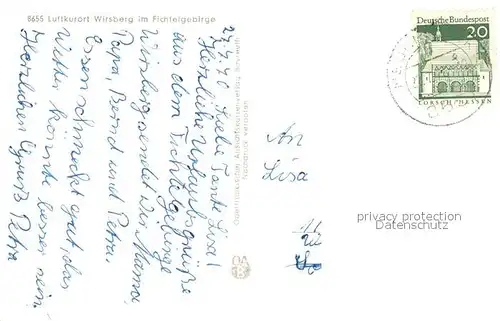 8655 Luftkurort Wirsberg im Fichtelgebirge
27.7.70. Liebe Tante Lisa!
Herzliche Urlaubsgrüße
aus dem Fichtelgebirge
Wirsberg sendet Dir Mama,
Papa, Bernd und Petra.
Essen schmeckt gut, das
Wetter könnte besser sein.
Herzlichen Gruß Petra
Nachdruck verboten
An
Lisa
Deutsche Bundespost
20
LORSCH/HESSEN
privacy protection
Datenschutz